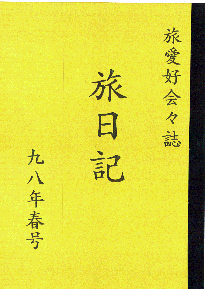 旅愛好会々誌
旅日記
九八年春号